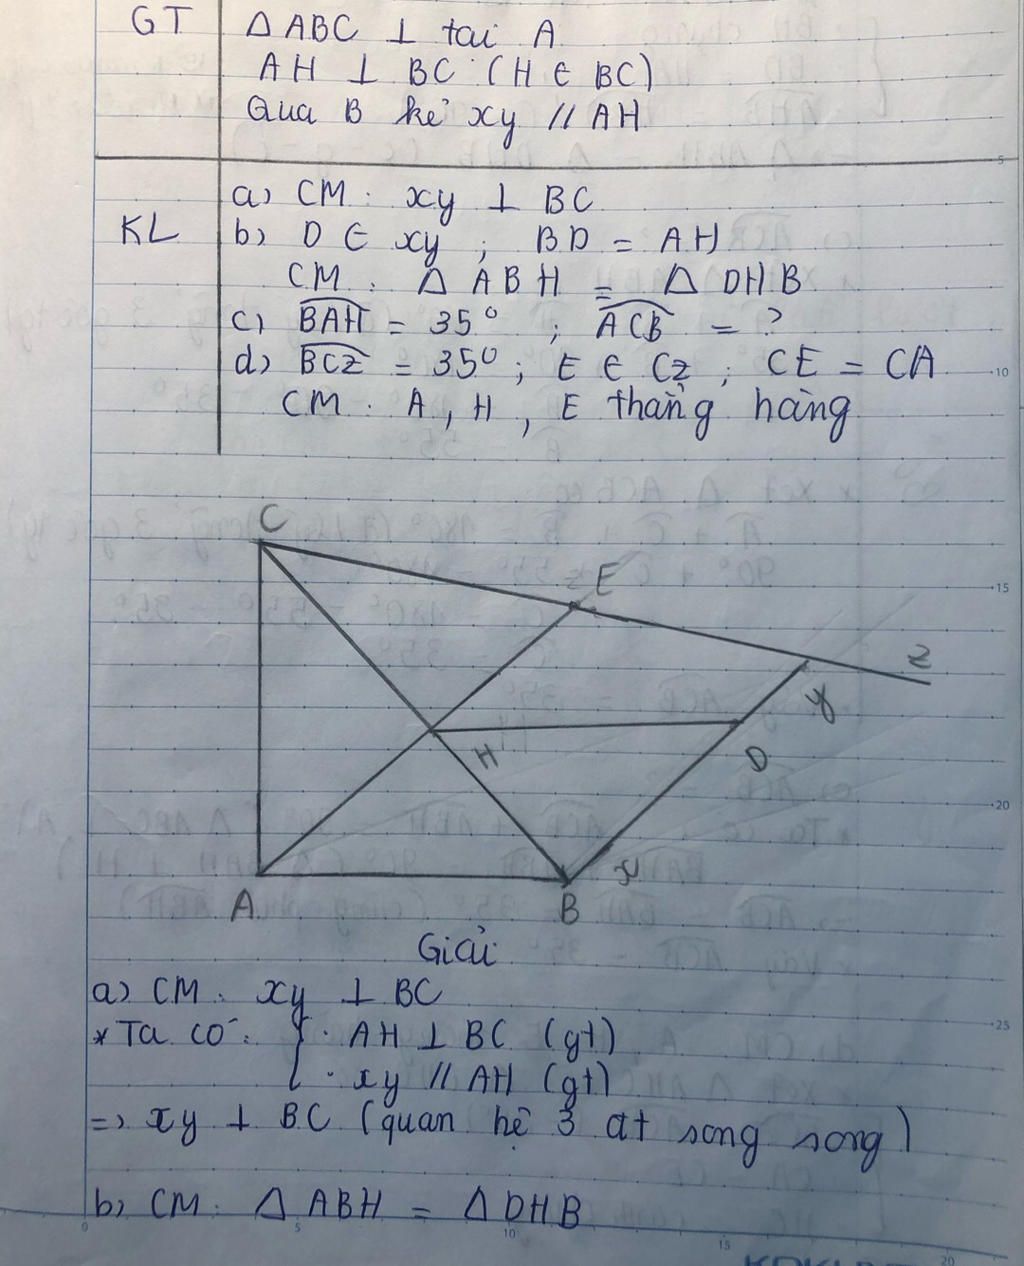 GT
Δ ABC ⊥ tại A
AH ⊥ BC (H ∈ BC)
Qua B kẻ xy // AH
KL
a) CM: xy ⊥ BC
b) D ∈ xy ; BD = AH
CM: Δ ABH = Δ DHB
c) BAH = 35° ; ACB = ?
d) BCz = 35° ; E ∈ Cz ; CE = CA
CM: A, H, E thẳng hàng
C
E
z
y
H
D
x
A
B
Giải
a) CM: xy ⊥ BC
* Ta có: { · AH ⊥ BC (gt)
· xy // AH (gt)
=> xy ⊥ BC (quan hệ 3 đt song song)
b) CM: Δ ABH = Δ DHB
5
10
15
20
25
0
5
10
15
20